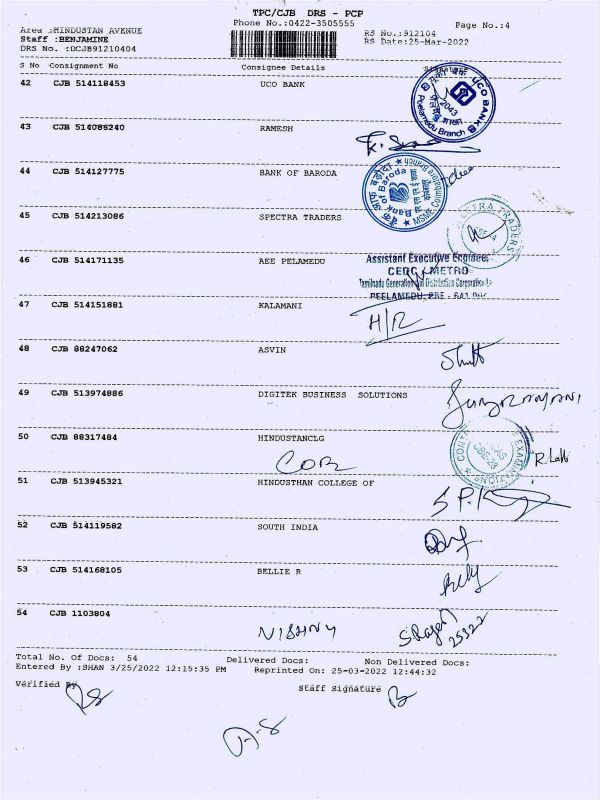 TPC/CJB DRS - PCP
Phone No.:0422-3505555
Page No.:4
Area :HINDUSTAN AVENUE
RS No.:912104
Staff :BENJAMINE
RS Date:25-Mar-2022
DRS No. :DCJB91210404
S No Consignment No Consignee Details
42 CJB 514118453 UCO BANK
UCO BANK
Peelamedu Branch
2043
43 CJB 514086240 RAMESH
44 CJB 514127775 BANK OF BARODA
Bank of Baroda
MSME Coimbatore Branch
45 CJB 514213086 SPECTRA TRADERS
TRADERS
46 CJB 514171135 AEE PELAMEDU
Assistant Executive Engineer
METRO
Tamilnadu Generation and Distribution Corporation
PEELAMEDU, CBE - 641
47 CJB 514151881 KALAMANI
H/R
48 CJB 88247062 ASVIN
49 CJB 513974886 DIGITEK BUSINESS SOLUTIONS
50 CJB 88317484 HINDUSTANCLG
COE
CBE-28
51 CJB 513945321 HINDUSTHAN COLLEGE OF
52 CJB 514119582 SOUTH INDIA
53 CJB 514168105 BELLIE R
54 CJB 1103804
Total No. Of Docs: 54 Delivered Docs: Non Delivered Docs:
Entered By :SHAN 3/25/2022 12:15:35 PM Reprinted On: 25-03-2022 12:44:32
Verified By Staff Signature